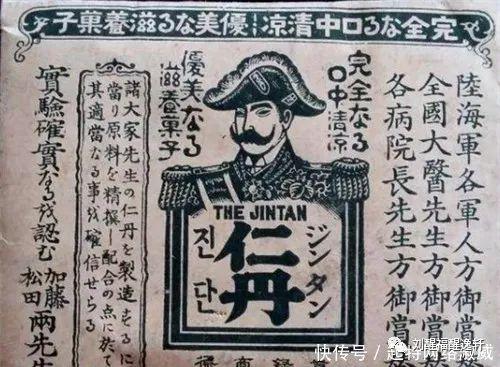 完全なる口中清涼優美なる滋養菓子
陸海軍各軍人方御當
全國大醫先生方御當
各病院長先生方御當
完全なる
口中清凉
優美なる
滋養菓子
THE JINTAN
ジンタン
仁丹
진단
諸大家先生の仁丹を製造するに
當り原料を精撰し配合の点に於て
其適當なる事を確信せらる
實驗確實なるを認む
加藤
松田 兩先生
快传号/
刘醒福醒逸轩